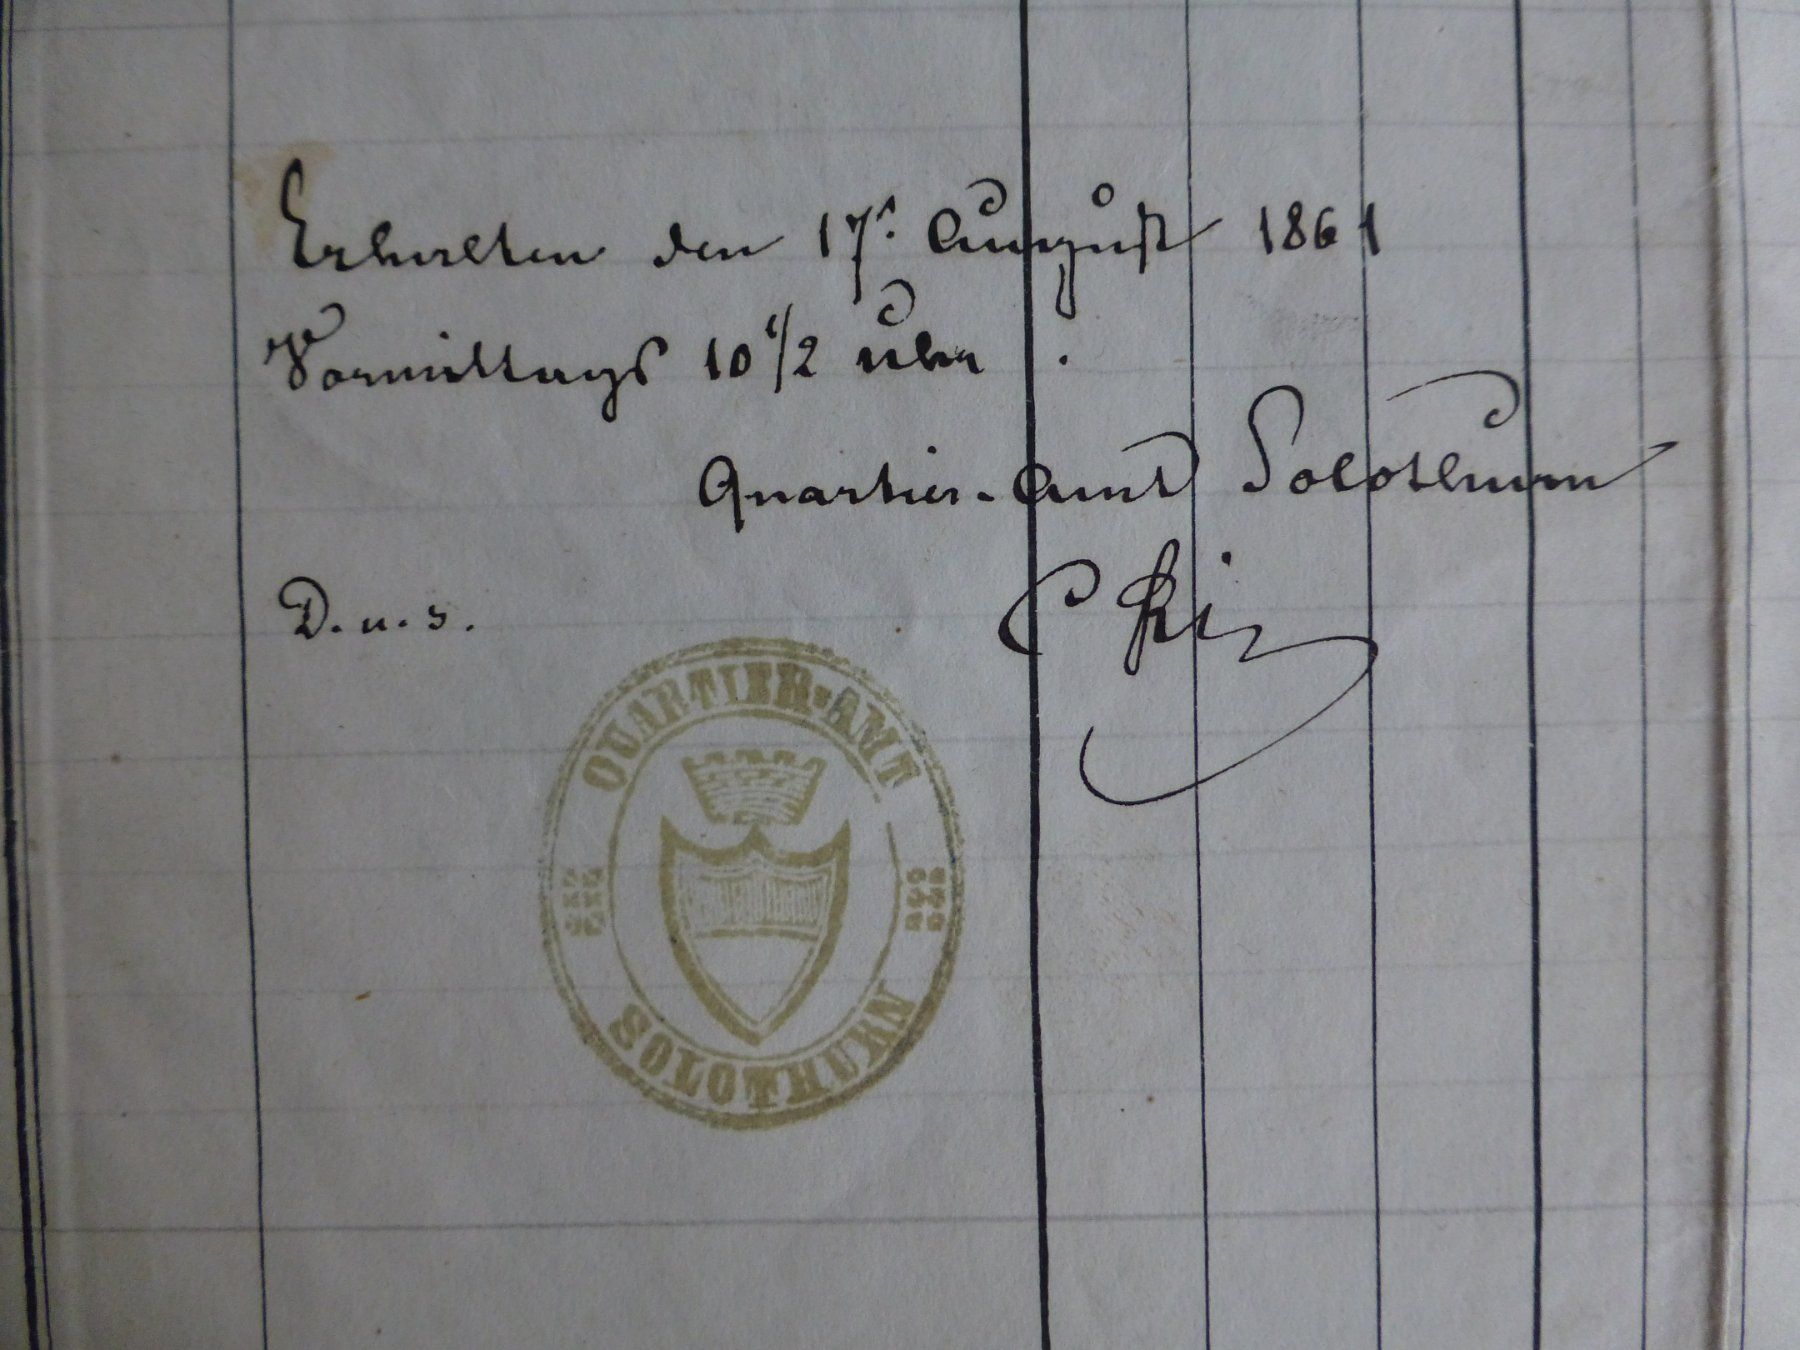 Erhalten den 17t. August 1861
Vormittags 10 1/2 Uhr.
Quartier-Amt Solothurn
D. u. s.
QUARTIER-AMT
SOLOTHURN